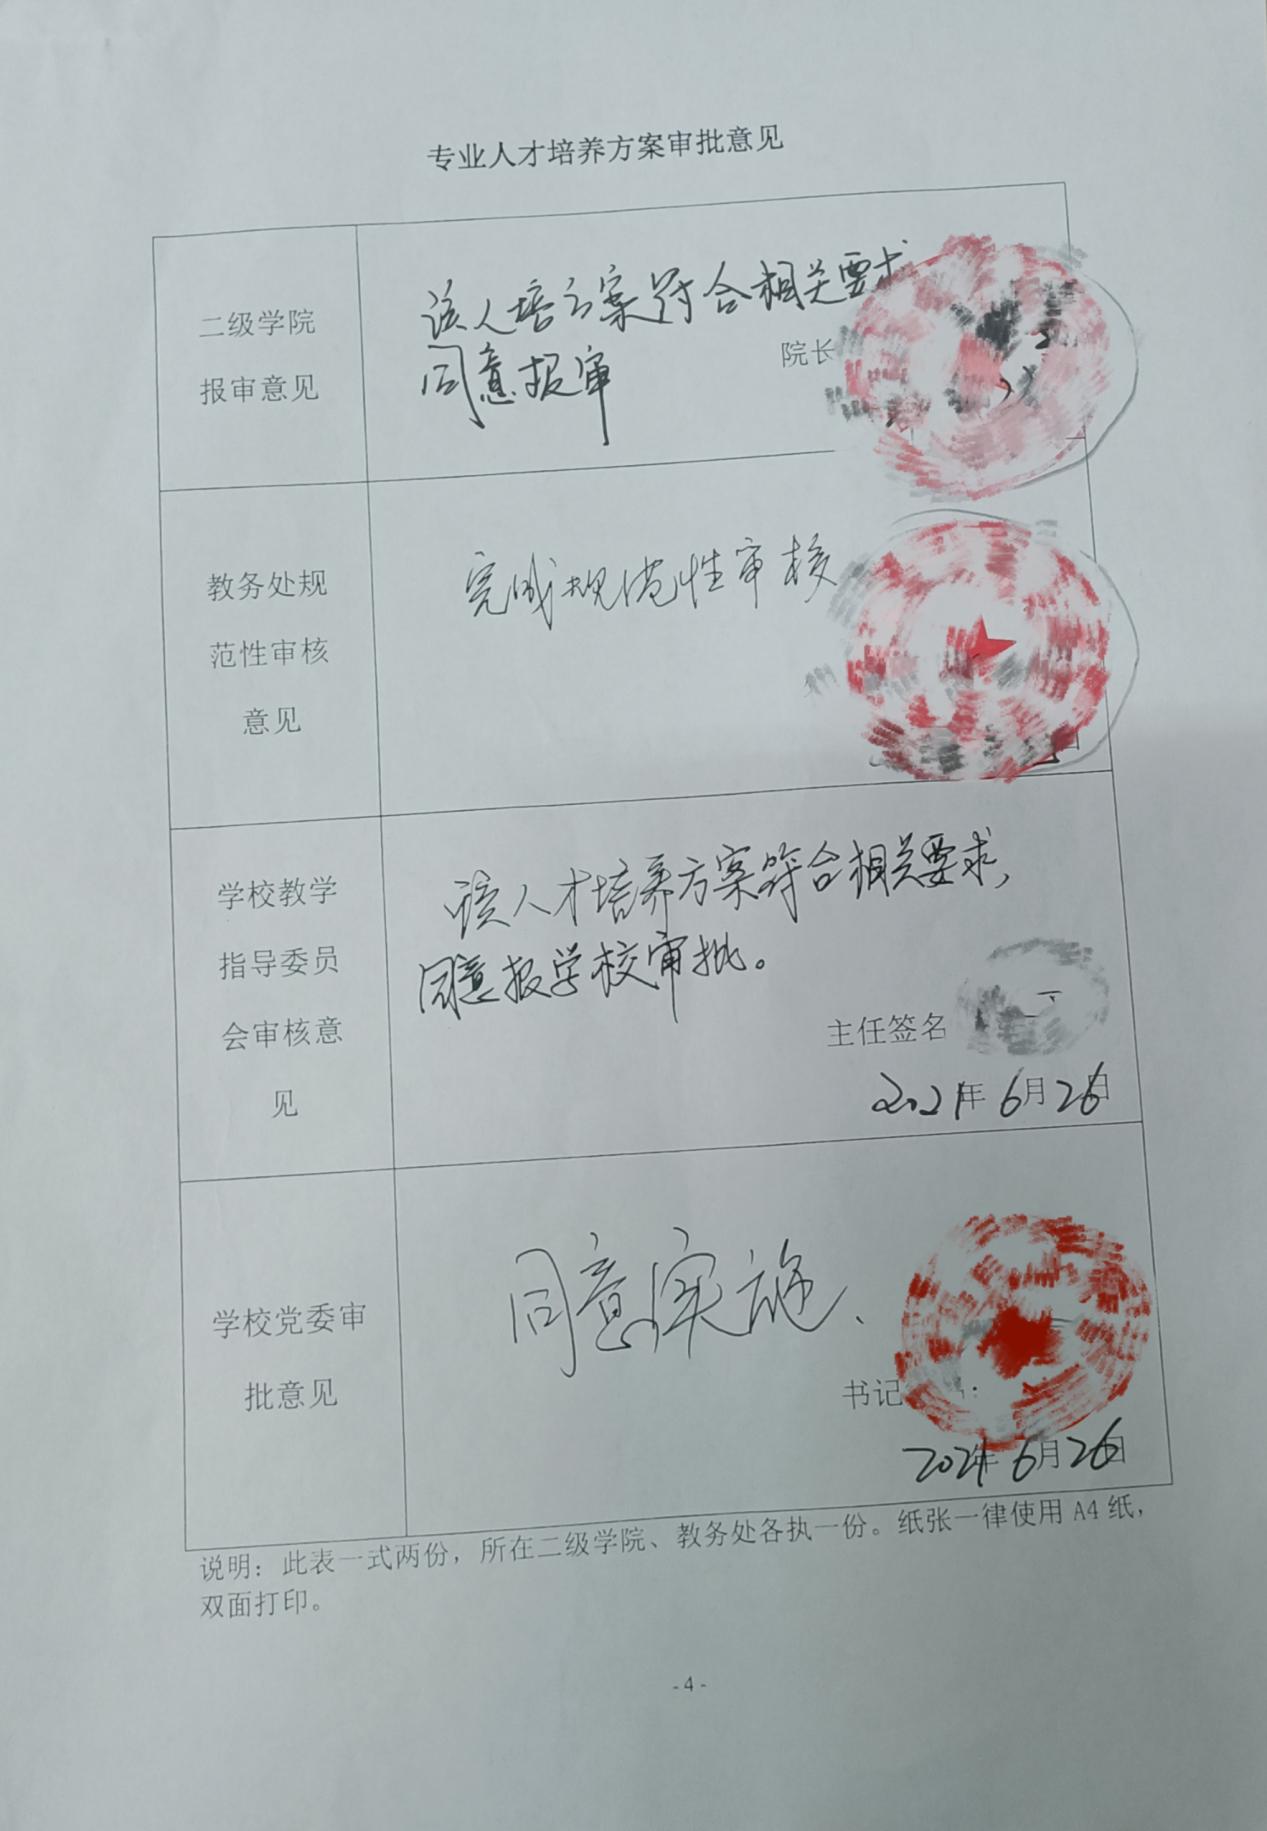 专业人才培养方案审批意见
二级学院
报审意见
该人培方案符合相关要求
同意报审
院长
教务处规
范性审核
意见
完成规范性审核
学校教学
指导委员
会审核意
见
该人才培养方案符合相关要求，
同意报学校审批。
主任签名
2021年6月26日
学校党委审
批意见
同意实施、
书记
2021年6月26日
说明：此表一式两份，所在二级学院、教务处各执一份。纸张一律使用 A4 纸，
双面打印。
- 4 -